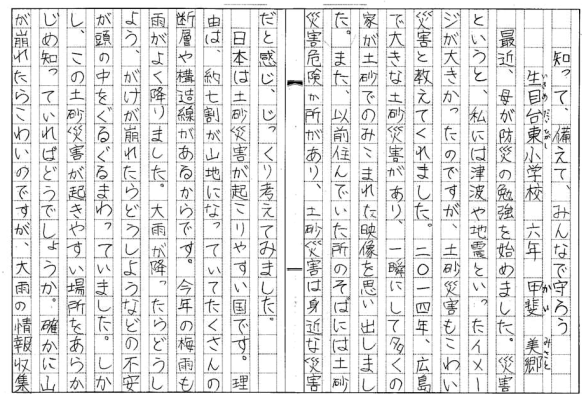 知って、備えて、みんなで守ろう
生目台東小学校　六年　甲斐　美郷
いきめだいひがし　かい　みさと
最近、母が防災の勉強を始めました。災害
というと、私には津波や地震といったイメー
ジが大きかったのですが、土砂災害もこわい
災害と教えてくれました。二〇一四年、広島
で大きな土砂災害があり、一瞬にして多くの
家が土砂でのみこまれた映像を思い出しまし
た。また、以前住んでいた所のそばには土砂
災害危険か所があり、土砂災害は身近な災害
だと感じ、じっくり考えてみました。
日本は土砂災害が起こりやすい国です。理
由は、約七割が山地になっていてたくさんの
断層や構造線があるからです。今年の梅雨も
雨がよく降りました。大雨が降ったらどうし
よう、がけが崩れたらどうしようなどの不安
が頭の中をぐるぐるまわっていました。しか
し、この土砂災害が起きやすい場所をあらか
じめ知っていればどうでしょうか。確かに山
が崩れたらこわいのですが、大雨の情報収集